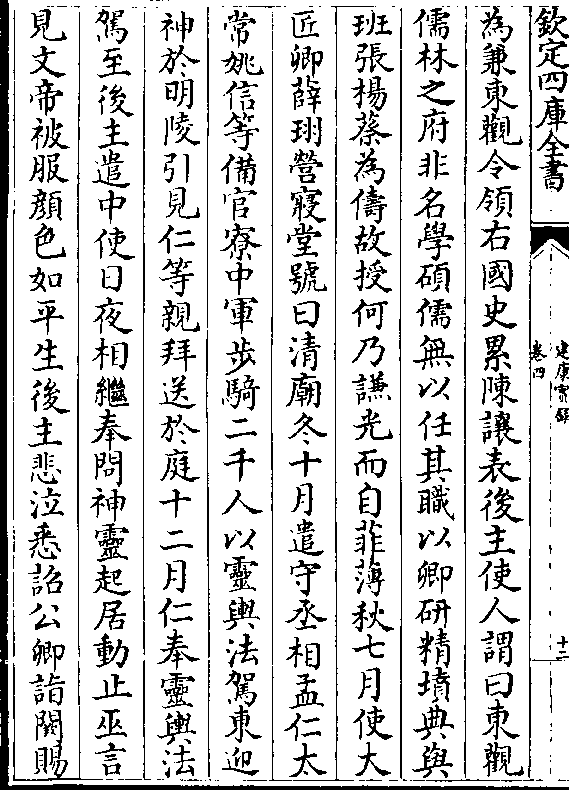 欽定四庫全書
建康實錄
卷四
十二
為兼東觀令領右國史累陳讓表後主使人謂曰東觀
儒林之府非名學碩儒無以任其職以卿研精墳典與
班張揚蔡為儔故授何乃謙光而自菲薄秋七月使大
匠卿薛珝營寢堂號曰清廟冬十月遣守丞相孟仁太
常姚信等備官寮中軍步騎二千人以靈輿法駕東迎
神於明陵引見仁等親拜送於庭十二月仁奉靈輿法
駕至後主遣中使日夜相繼奉問神靈起居動止巫言
見文帝被服顔色如平生後主悲泣悉詔公卿詣闕賜